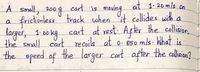 A small, 200 g cart is moving at 1.20 m/s on
a frictionless track when it collides with a
larger, 1.00 kg cart at rest. After the collision,
the small cart recoils at 0.850 m/s. What is
the speed of the larger cart after the collision?